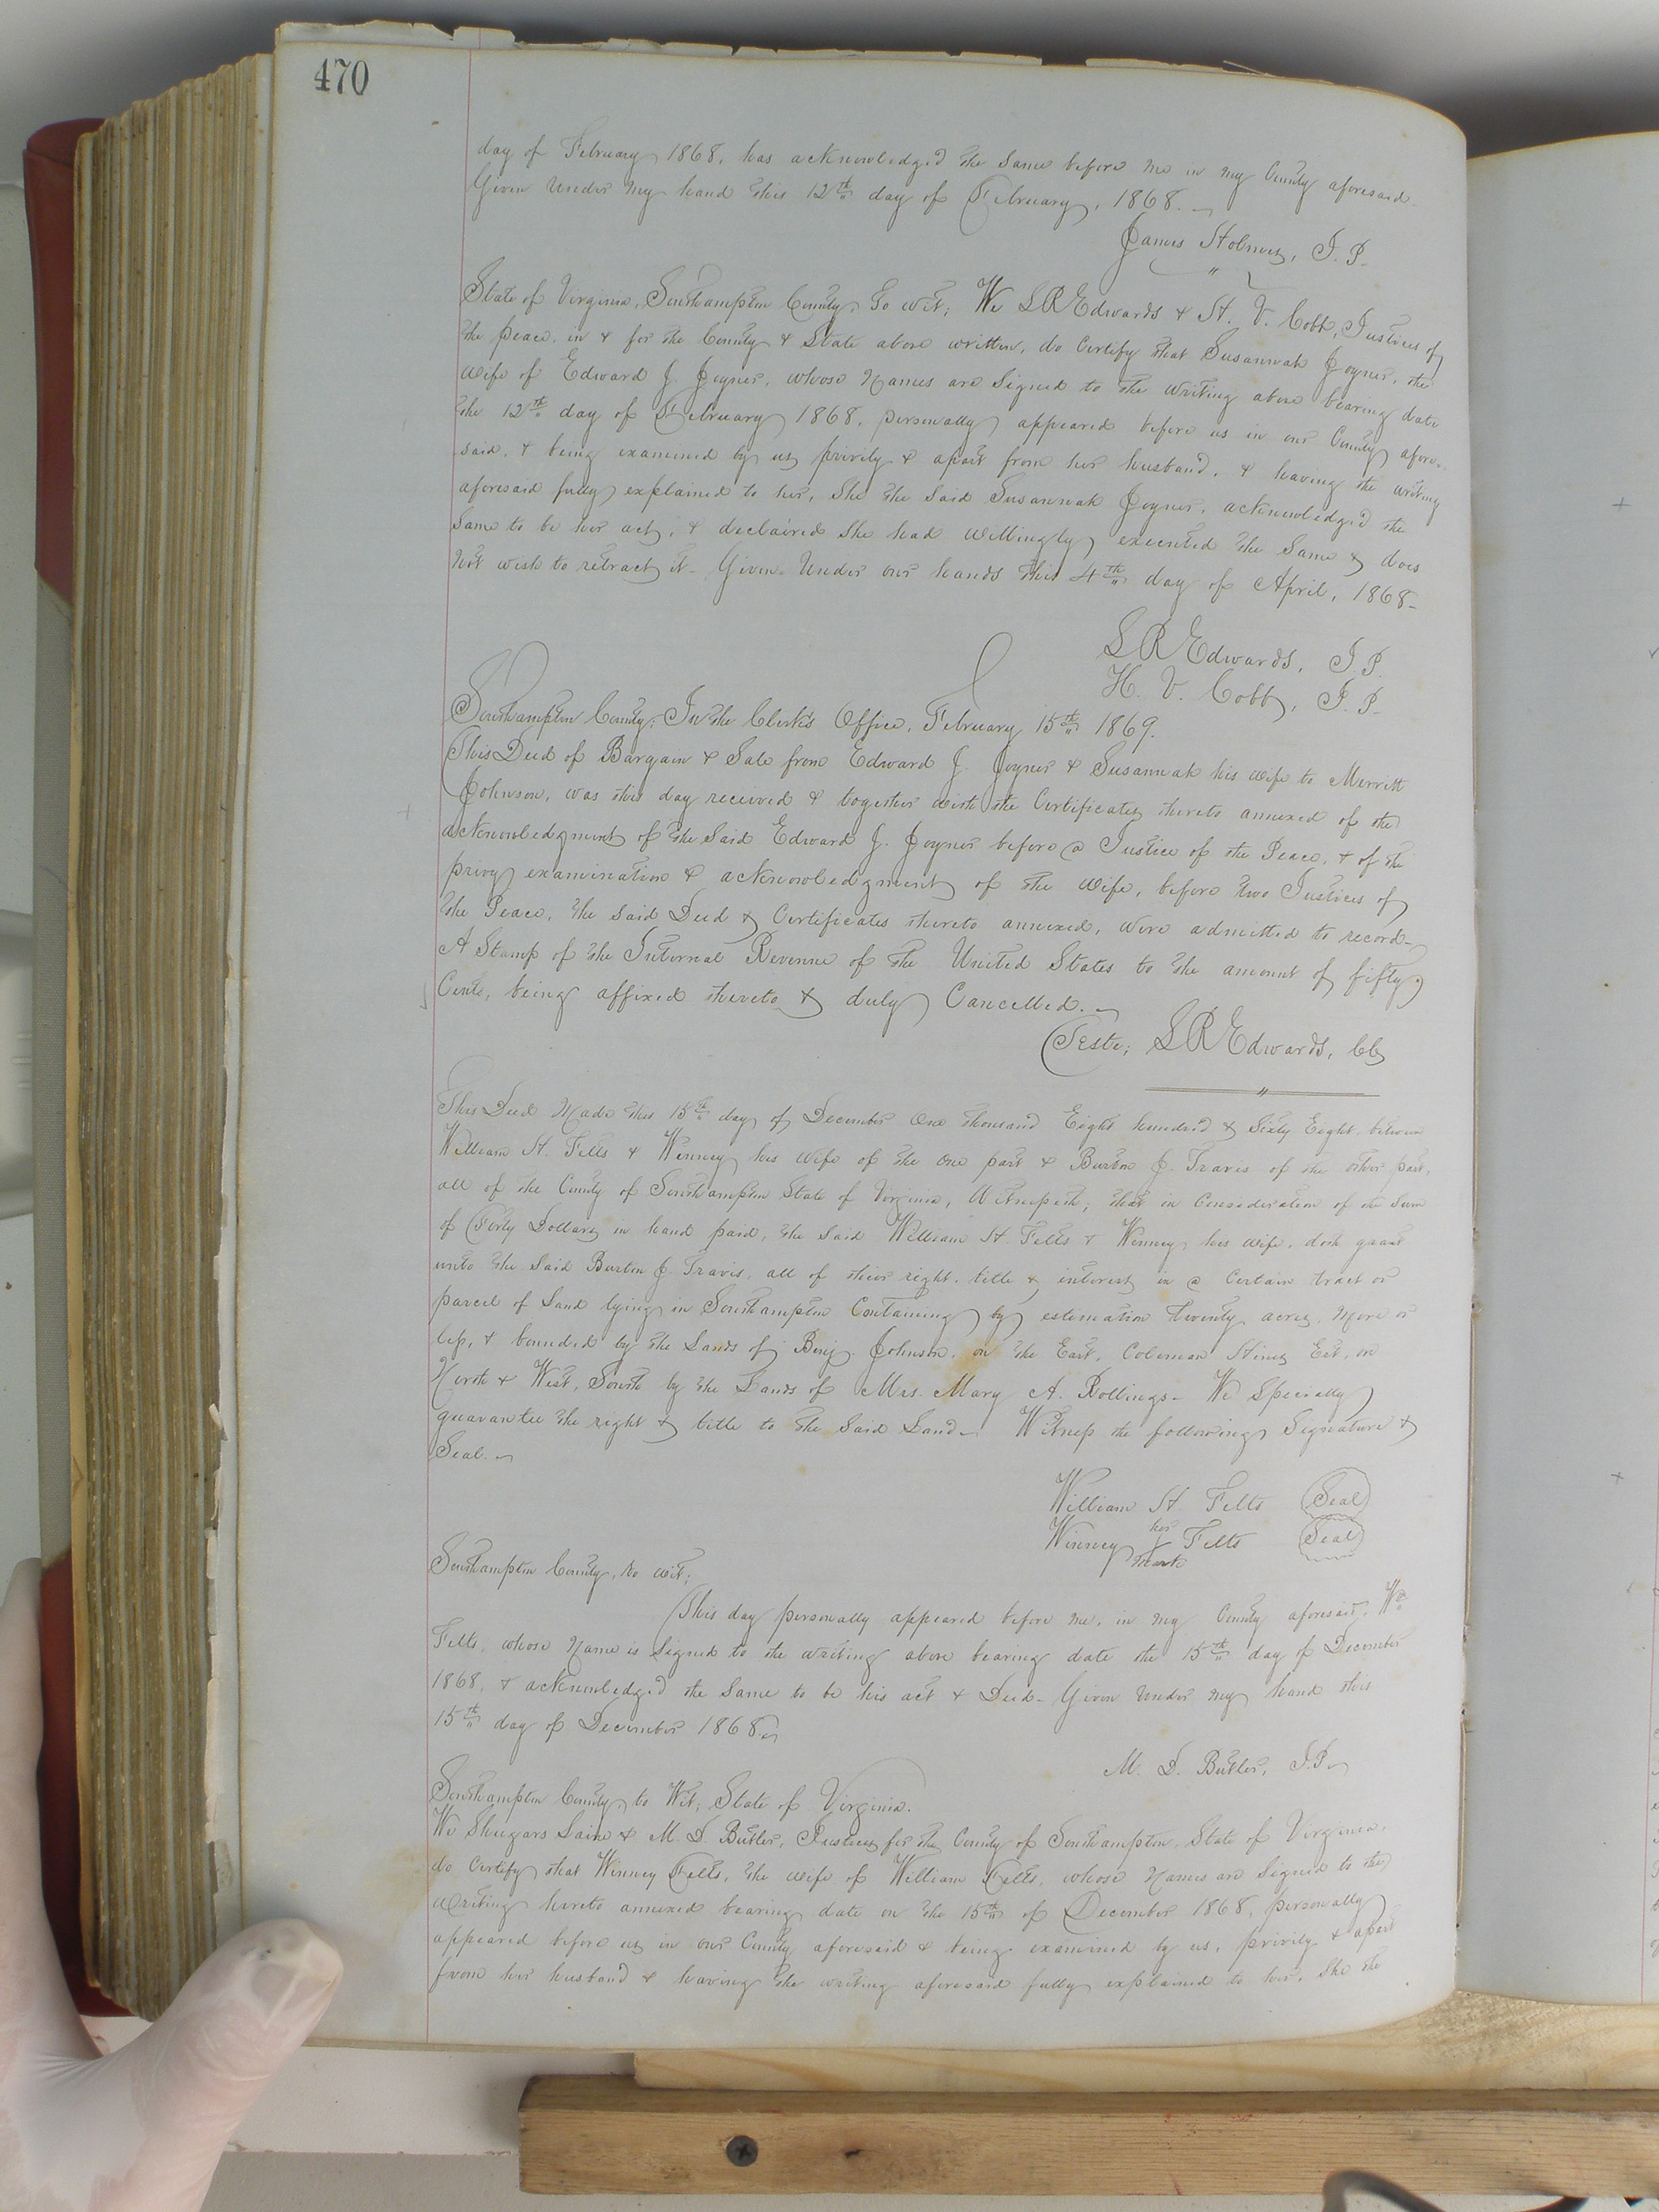 470
day of February 1868, has acknowledged the same before me in my County aforesaid.
Given under my hand this 12th day of February, 1868.
James Holmes, J. P.
State of Virginia, Southampton County, to wit; We L R Edwards & H. V. Cobb, Justices of
the peace, in & for the County & State above written, do Certify that Susannah Joyner, the
wife of Edward J. Joyner, whose Names are Signed to the writing above bearing date
the 12th day of February 1868, personally appeared before us in our County afore-
said, & being examined by us privily & apart from her husband, & having the writing
aforesaid fully explained to her, She the Said Susannah Joyner, acknowledged the
Same to be her act, & declaired She had willingly executed the Same & does
Not wish to retract it. Given Under our hands this 4th day of April, 1868.
L R Edwards, J. P.
H. V. Cobb, J. P.
Southampton County: In the Clerk's Office, February 15th 1869.
This Deed of Bargain & Sale from Edward J. Joyner & Susannah his wife to Merritt
Johnson, was this day received & together with the Certificates thereto annexed of the
acknowledgment of the Said Edward J. Joyner before a Justice of the Peace, & of the
privy examination & acknowledgment of the wife, before two Justices of
the Peace, the Said Deed & Certificates thereto annexed, were admitted to record.
A Stamp of the Internal Revenue of the United States to the amount of fifty
Cents, being affixed thereto & duly Cancelled.
Teste; L R Edwards, CC
This Deed Made this 15th day of December One thousand Eight hundred & Sixty Eight between
William H. Felts & Winney his wife of the one part & Burton J. Travis of the other part,
all of the County of Southampton State of Virginia, Witnesseth; that in Consideration of the Sum
of Forty Dollars in hand paid, the Said William H Felts & Winney his wife, doth grant
unto the Said Burton J. Travis, all of their right, title & interest in a Certain tract or
parcel of Land lying in Southampton Containing by estimation twenty acres, More or
less, & bounded by the Lands of Benj. Johnson, on the East, Coleman Est, on
North & West, South by the Lands of Mrs. Mary A. Rollings. We Specially
guarantee the right & title to the Said Land. Witness the following Signature &
Seal.
William H. Felts Seal
her
Winney Felts Seal
mark
Southampton County, to wit;
This day personally appeared before me, in my County aforesaid, Wm
Felts, whose Name is Signed to the writing above bearing date the 15th day of December
1868, & acknowledged the Same to be his act & Deed. Given Under my hand this
15th day of December 1868.
M. D. Butler, J. P.
Southampton County, to Wit; State of Virginia.
We Shugars & M. D. Butler, Justices for the County of Southampton State of Virginia,
do Certify that Winney Felts, the wife of William Felts, whose Names are Signed to the
writing hereto annexed bearing date on the 15th of December 1868, personally
appeared before us in our County aforesaid & being examined by us, privily & apart
from her husband & having the writing aforesaid fully explained to her, She the